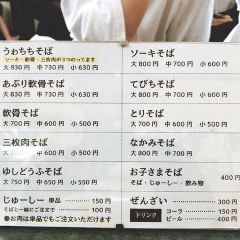 うわちちそば
ソーキ・軟骨・三枚肉が3つのってます
大 830円 中 730円 小 630円
あぶり軟骨そば
大 830円 中 730円 小 530円
軟骨そば
大 700円 中 600円 小 500円
三枚肉そば
大 700円 中 600円 小 500円
ゆしどうふそば
大 750円 中 650円 小 550円
じゅーしー 単品 150円
そばと一緒にご注文で 100円
●お肉は単品でもご注文いただけます
ソーキそば
大 800円 中 700円 小 600円
てびちそば
大 800円 中 700円 小 600円
とりそば
大 700円 中 600円 小 500円
なかみそば
大 800円 中 700円 小 600円
お子さまそば
そば・じゅーしー・飲み物
400円
ぜんざい 300円
ドリンク
コーラ 150円
ビール 400円